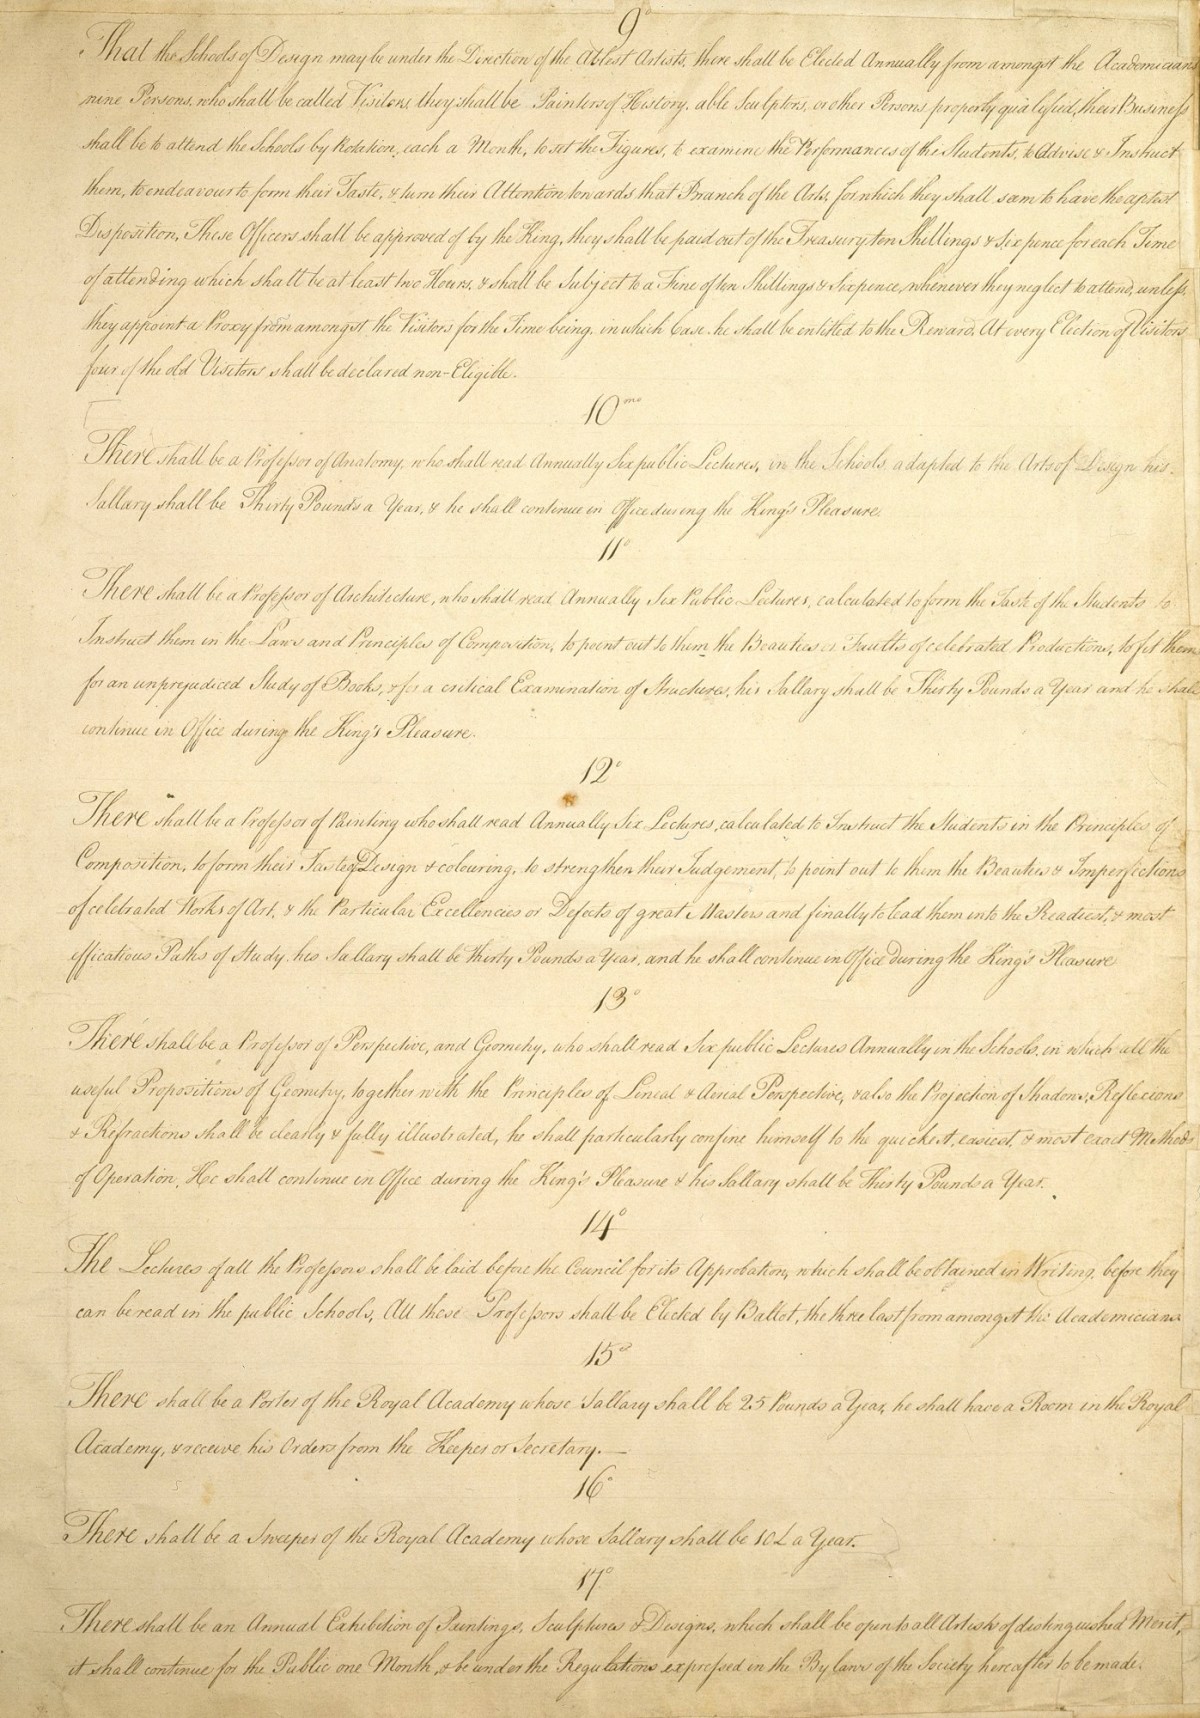 9°
That the Schools of Design may be under the Direction of the Ablest Artists, there shall be Elected Annually from amongst the Academicians
nine Persons, who shall be called Visitors, they shall be Painters of History, able Sculptors, or other Persons properly qualified, their Business
shall be to attend the Schools by Rotation, each a Month, to set the Figures, to examine the Performances of the Students, to Advise & Instruct
them, to endeavour to form their Taste, & turn their Attention towards that Branch of the Arts, for which they shall seem to have the aptest
Disposition, These Officers shall be approved of by the King, they shall be paid out of the Treasury ten Shillings & Sixpence for each Time
of attending which shall be at least two Hours, & shall be Subject to a Fine of ten Shillings & Sixpence, whenever they neglect to attend, unless,
they appoint a Proxy from amongst the Visitors for the Time being, in which Case he shall be entitled to the Reward. At every Election of Visitors
four of the old Visitors shall be declared non-Eligible.
10mo
There shall be a Professor of Anatomy, who shall read Annually Six public Lectures, in the Schools, adapted to the Arts of Design his
Sallary shall be Thirty Pounds a Year, & he shall continue in Office during the King's Pleasure.
11°
There shall be a Professor of Architecture, who shall read Annually Six Public Lectures, calculated to form the Taste of the Students to
Instruct them in the Laws and Principles of Composition, to point out to them the Beauties or Faults of celebrated Productions, to fit them
for an unprejudiced Study of Books, & for a critical Examination of Structures, his Sallary shall be Thirty Pounds a Year and he shall
continue in Office during the King's Pleasure.
12°
There shall be a Professor of Painting who shall read Annually Six Lectures, calculated to Instruct the Students in the Principles of
Composition, to form their Taste of Design & colouring, to strengthen their Judgement, to point out to them the Beauties & Imperfictions
of celebrated Works of Art, & the Particular Excellencies or Defects of great Masters and finally to lead them into the Readiest, & most
efficatious Paths of Study. his Sallary shall be thirty Pounds a Year, and he shall continue in Office During the King's Pleasure
13°
There shall be a Professor of Perspective, and Geometry, who shall read Six public Lectures Annually in the Schools, in which all the
useful Propositions of Geometry, together with the Principles of Lineal & Aerial Perspective, & also the Projection of Shadows, Reflexions
& Refractions shall be clearly & fully illustrated, he shall particularly confine himself to the quickest, easiest, & most exact Methods
of Operation, He shall continue in Office during the King's Pleasure & his Sallary shall be Thirty Pounds a Year.
14°
The Lectures of all the Professors shall be laid before the Council for its Approbation, which shall be obtained in Writing, before they
can be read in the public Schools, All these Professors shall be Elected by Ballot, the three last from amongst the Academicians
15°
There shall be a Porter of the Royal Academy whose Sallary shall be 25 Pounds a Year, he shall have a Room in the Royal
Academy, & receive his Orders from the Keeper or Secretary.
16°
There shall be a Sweeper of the Royal Academy whose Sallary shall be 10 £ a Year.
17°
There shall be an Annual Exhibition of Paintings, Sculptures & Designs, which shall be open to all Artists of distinguished Merit,
it shall continue for the Public one Month, & be under the Regulations expressed in the By laws of the Society hereafter to be made.